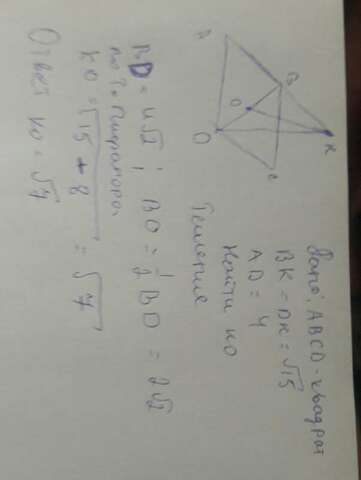 A
B
K
O
D
C
Дано: ABCD - квадрат
BK = DK = √15
AD = 4
Найти KO
Решение
BD = 4√2; BO = 1/2 BD = 2√2
по т. Пифагора
KO = √15 + 8 = √7
Ответ KO = √7